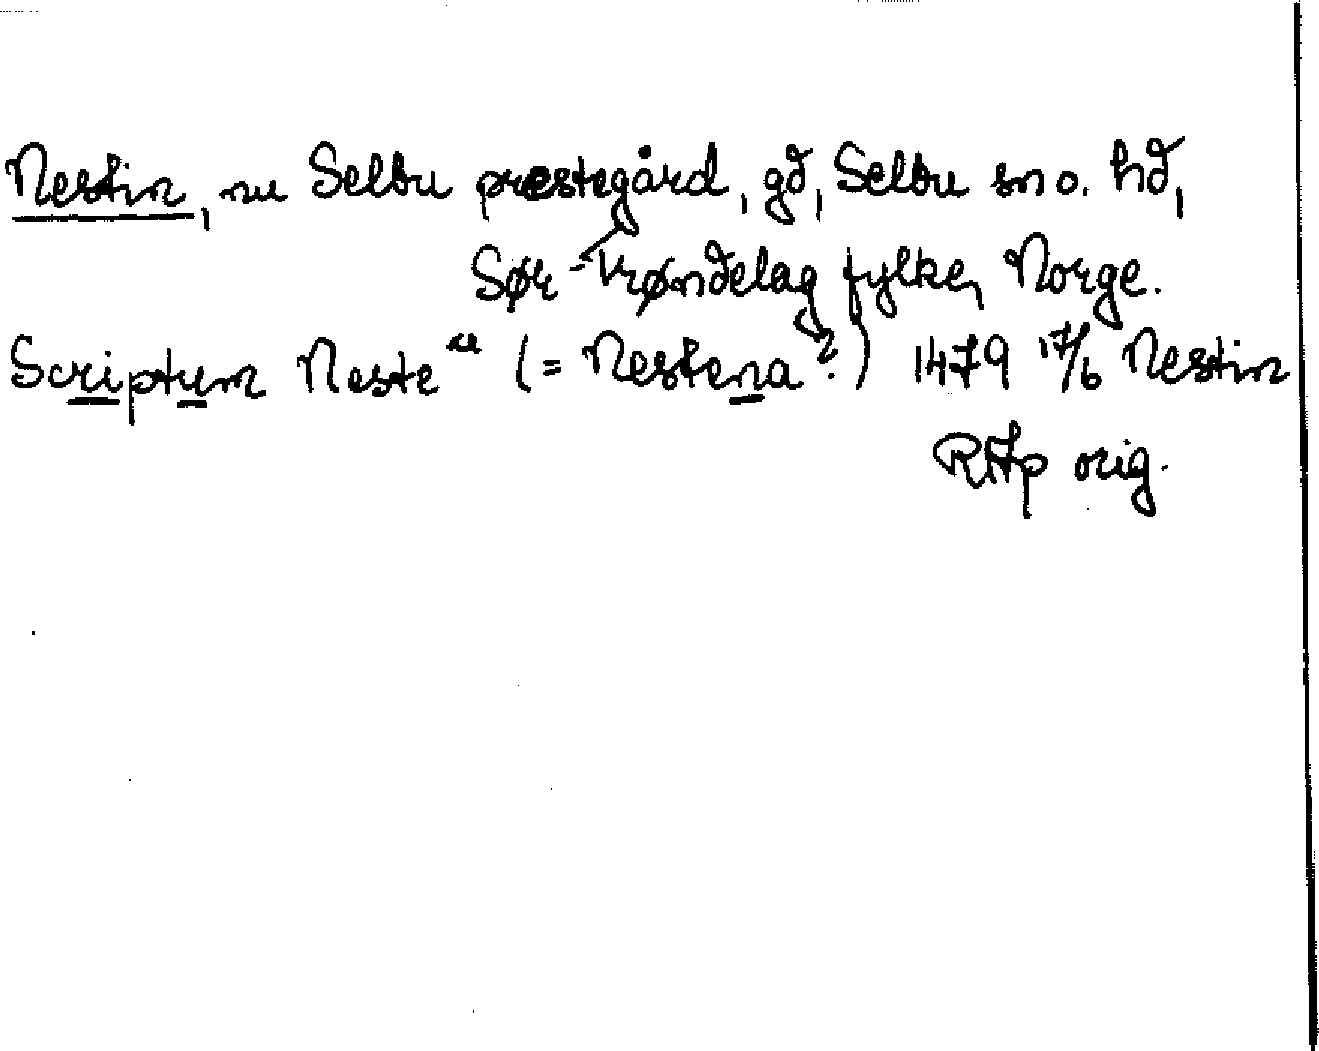 Nestin, nu Selbu prestegård, gd, Selbu sn o. hd,
Sør-Trøndelag fylke, Norge.
Scriptum Neste" (= Nestena?) 1479 17/6 Nestin
RAp orig.